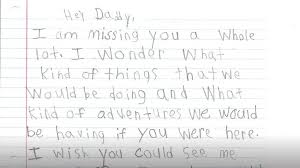 Hey Daddy,
I am missing you a whole
lot. I wonder what
kind of things that we
would be doing and what
kind of adventures we would
be having if you were here.
I wish you could see me